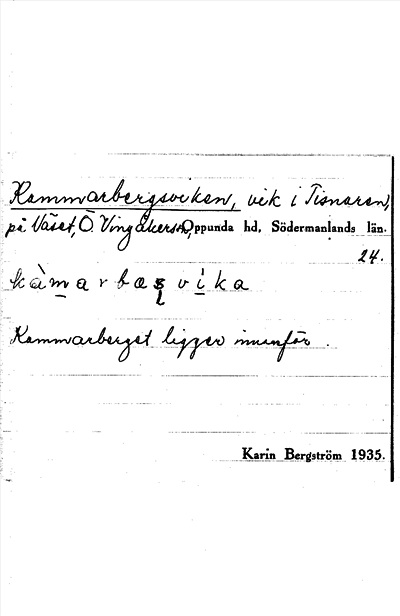 Kammarbergsviken, vik i Tisnaren,
på Väset, Ö. Vingåkers sn, Oppunda hd, Södermanlands län.
24.
kàmarbæʂvika
Kammarberget ligger innanför.
Karin Bergström 1935.